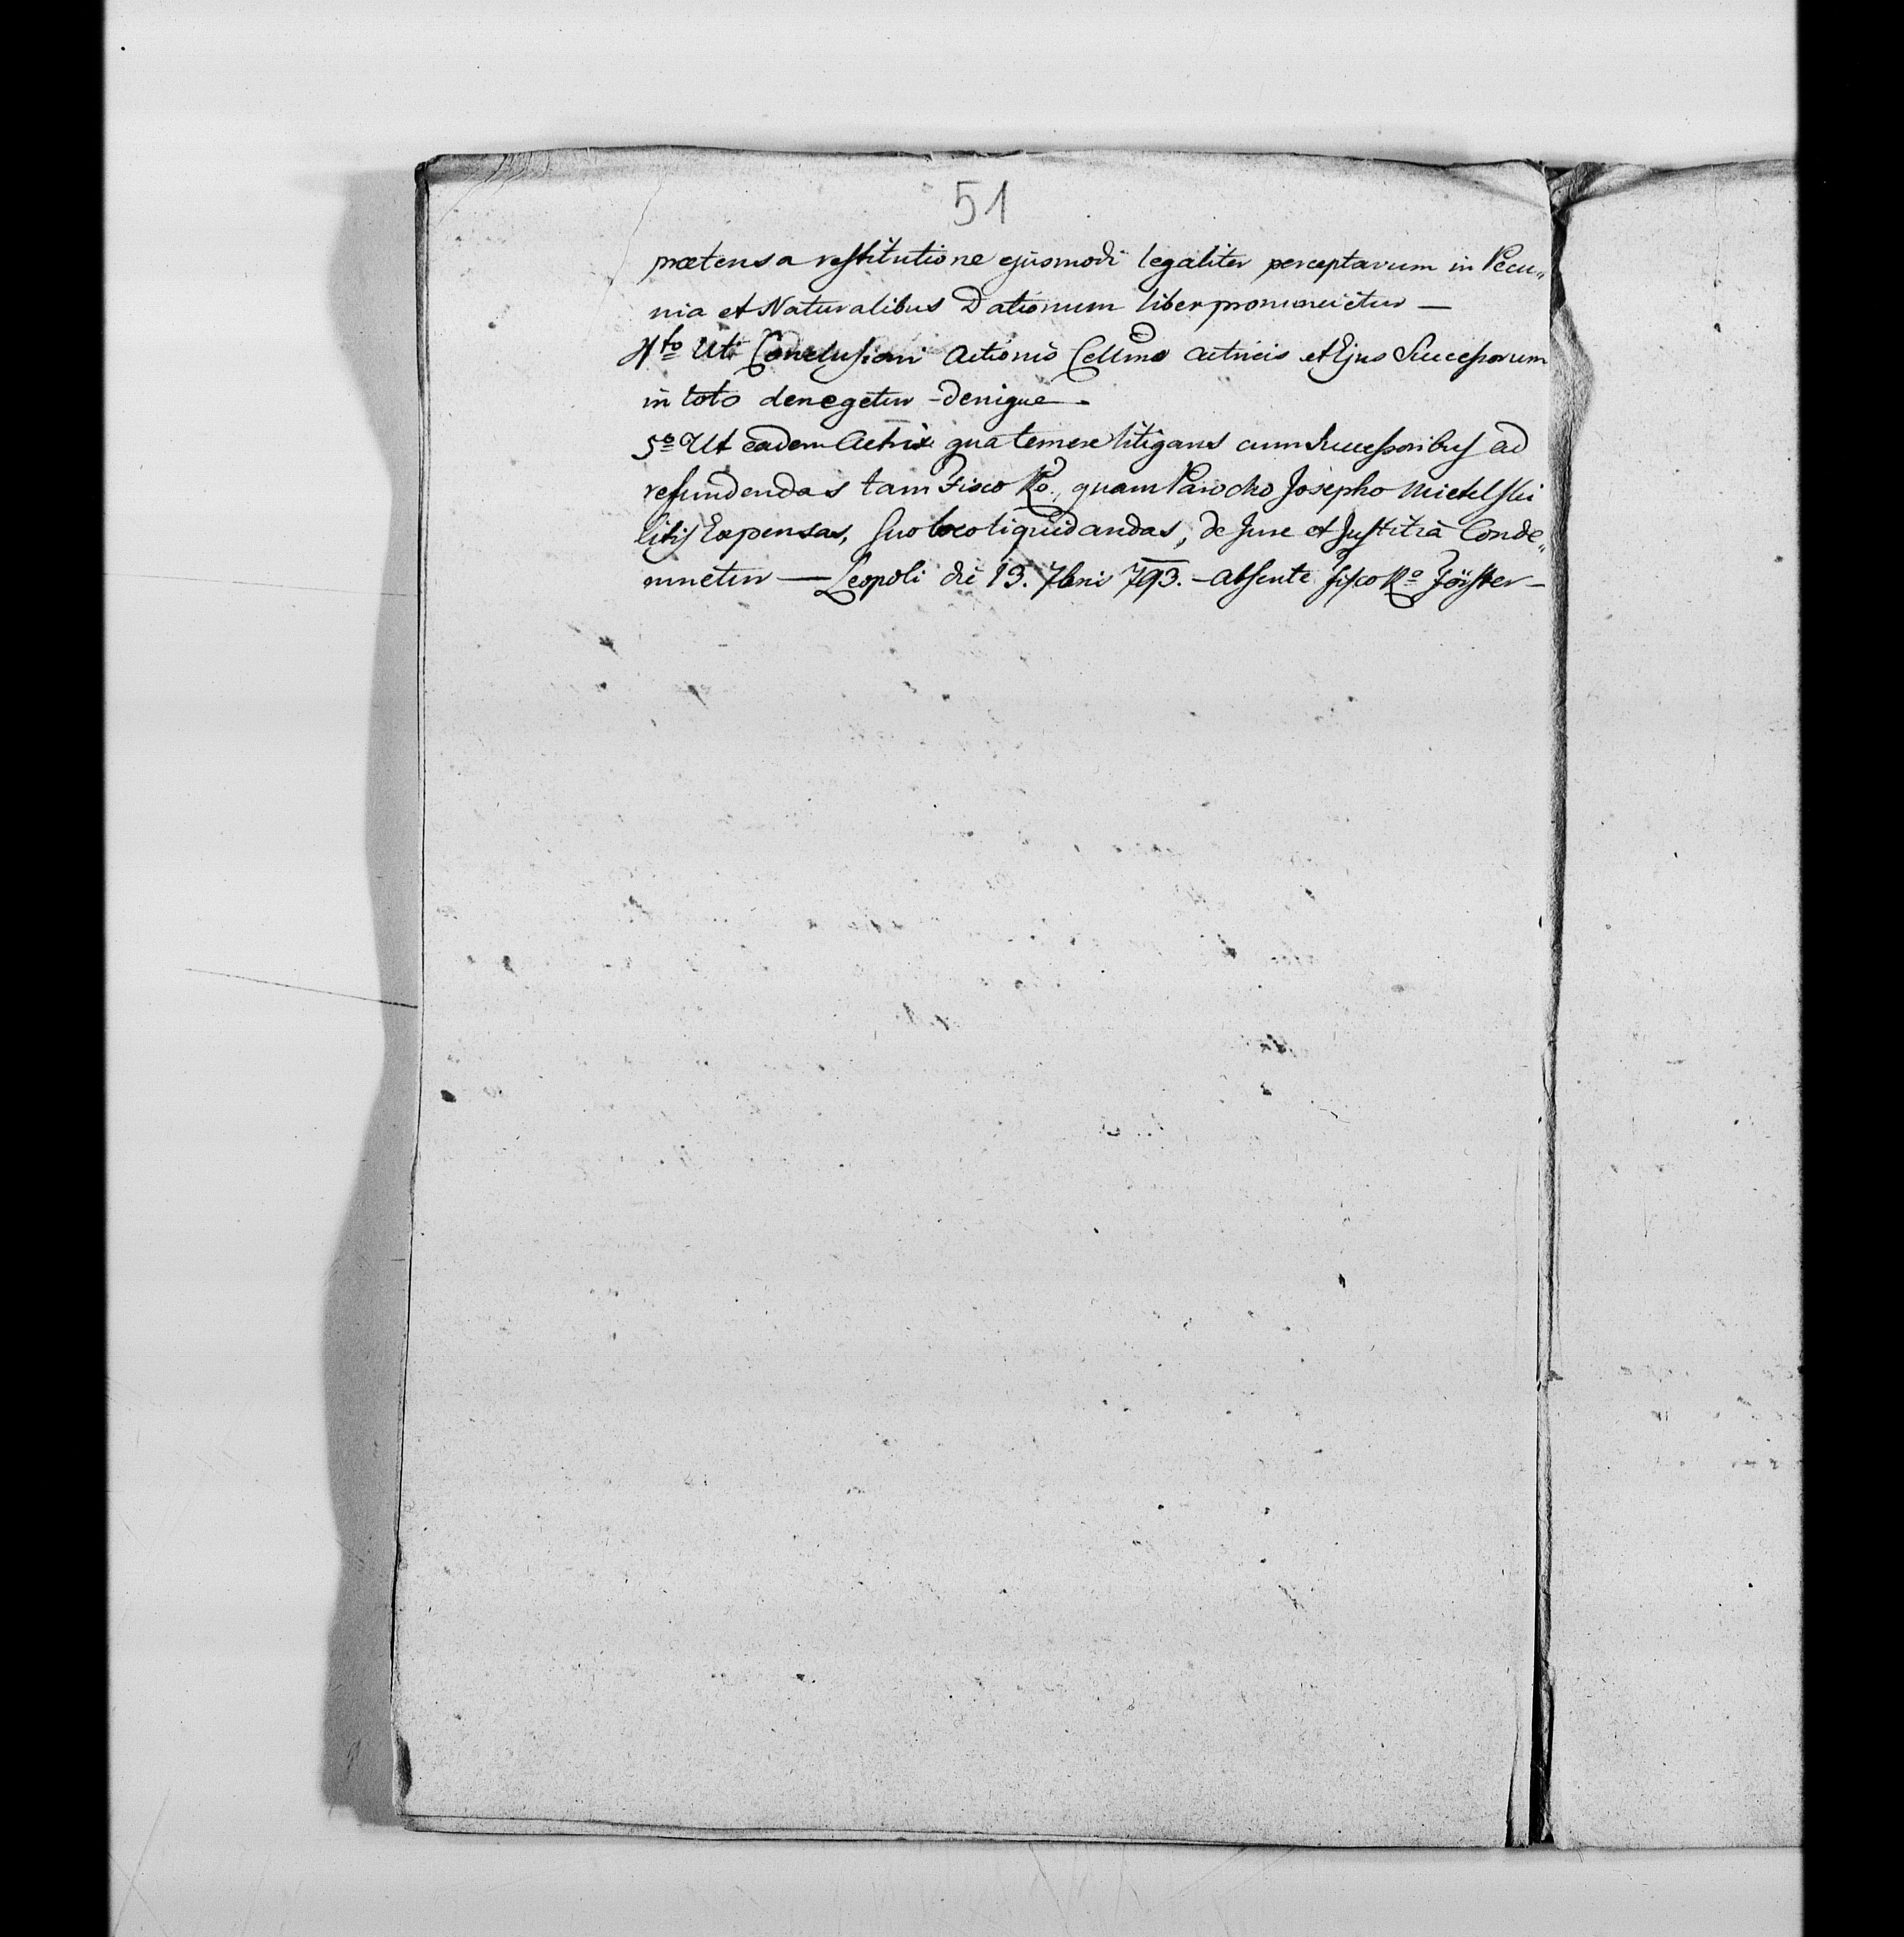 51
prætensa restitutione ejusmodi legaliter perceptarum in Pecu„
nia et Naturalibus Dationum liber pronuncietur —
4to Uti Conclusioni Actionis Cellmo actricis et Ejus Successorum
in toto denegetur - denique -
5o Ut eadem Actrix qua temere litigans cum Successoribus ad
refundendas tam Fisco Ro. quam Parocho Josepho
litis Expensas, suo loco liquidandas, de Jure et Justitia Conde„
mnetur — Leopoli die 13. 7bris 793. - absente Fisco Ro Förster -